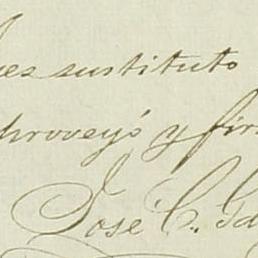 sustituto
proveyó y fir
José C. Ga